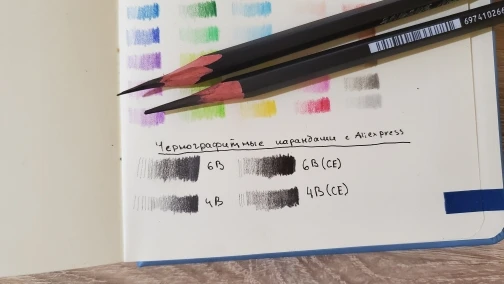 69741026
Чернографитные карандаши с Aliexpress
6B 6B (CE)
4B 4B (CE)